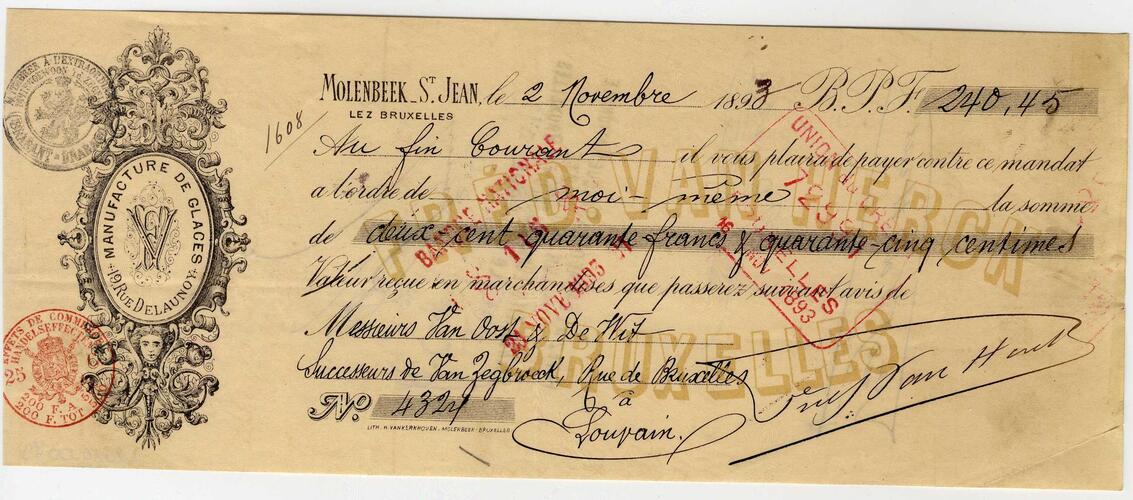 MOLENBEEK_ST JEAN, le 2 Novembre 1893 B.P.F. 240,45
LEZ BRUXELLES
1608
Au fin Courant il vous plaira de payer contre ce mandat
a l'ordre de moi-même la somme
de deux cent quarante francs & quarante-cinq centimes
Valeur reçue en marchandises que passerez suivant avis de
Messieurs Van Oost & De Wit
Successeurs de Van Zegbroeck, Rue de Bruxelles
à
Louvain.
No 4324
LITH. H. VANKERKHOVEN. MOLENBEEK-BRUXELLES
MANUFACTURE DE GLACES
19 RUE DELAUNOY
FRÉD. VAN HERCK
BRUXELLES
BANQUE NATIONALE
NOVE 1893
UNION DU CREDIT
BRUXELLES
16
1893
EFFETS DE COMMERCE
HANDELSEFFECTEN
25
200 F. A
200 F. TOT
TIMBRE A L'EXTRAORD
BRABANT-BRABANT